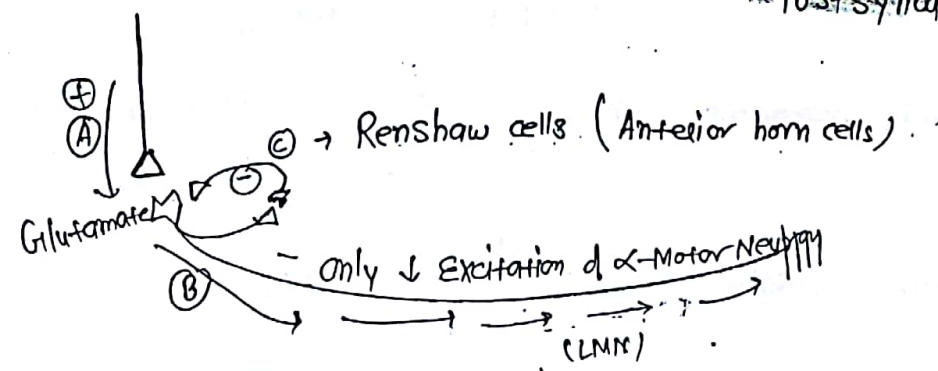 ⊕
Ⓐ
Ⓒ → Renshaw cells. (Anterior horn cells).
⊖
Glutamate
- Only ↓ Excitation of α-Motor Neuron
Ⓑ
(LMN)